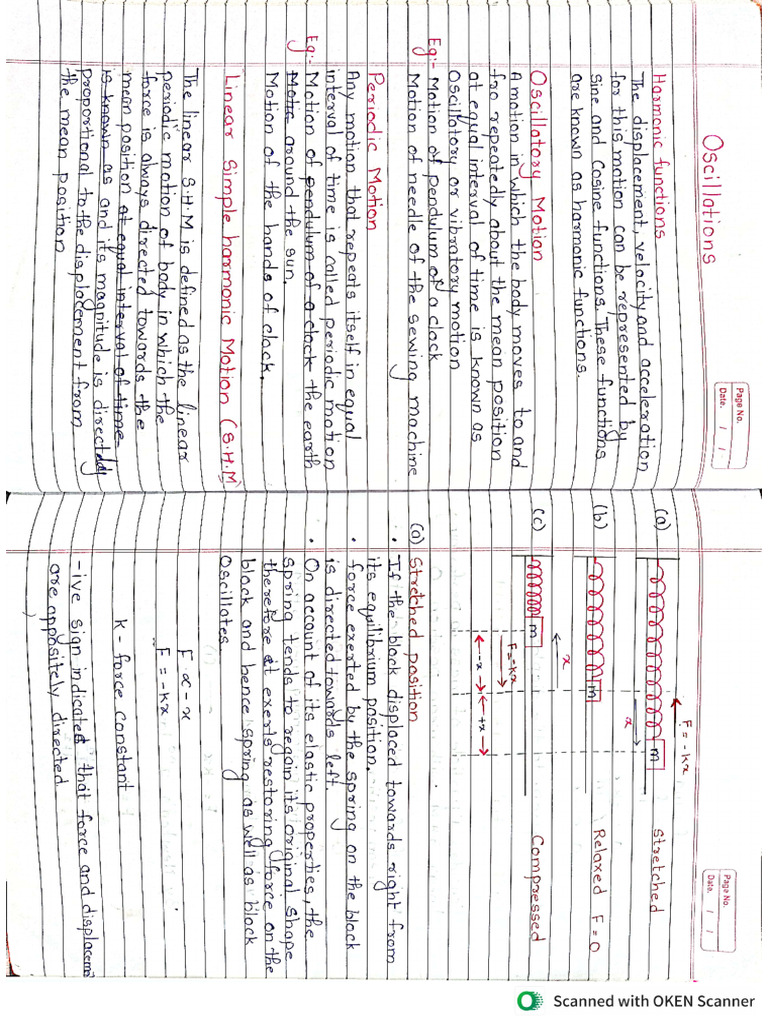 Page No.
Date. / /
Oscillations
Harmonic functions
The displacement, velocity and acceleration
for this motion can be represented by
sine and cosine functions. These functions
are known as harmonic functions.
Oscillatory Motion
A motion in which the body moves to and
fro repeatedly about the mean position
at equal interval of time is known as
Oscillatory or vibratory motion
Eg:- Motion of pendulum of a clock
Motion of needle of the sewing machine
Periodic Motion
Any motion that repeats itself in equal
interval of time is called periodic motion
Eg:- Motion of pendulum of a clock the earth
Motio around the sun.
Motion of the hands of clock.
Linear Simple harmonic Motion (S.H.M)
The linear S.H.M is defined as the linear
periodic motion of body in which the
force is always directed towards the
mean position at equal interval of time
is known as and its magnitude is directly
proportional to the displacement from
the mean position
Page No.
Date. / /
F = -kx
(a) m Stretched
x
(b) m Relaxed F = 0
x
(c) m Compressed
F = -kx
-x +x
(a) Stretched position
• If the block displaced towards right from
its equilibrium position.
• force exerted by the spring on the block
is directed towards left.
• On account of its elastic properties, the
spring tends to regain it's original shape
therefore it exerts restoring force on the
block and hence spring as well as block
oscillates.
F ∝ -x
F = -kx
k - force constant
-ive sign indicates that force and displacemen
are oppositely directed
Scanned with OKEN Scanner